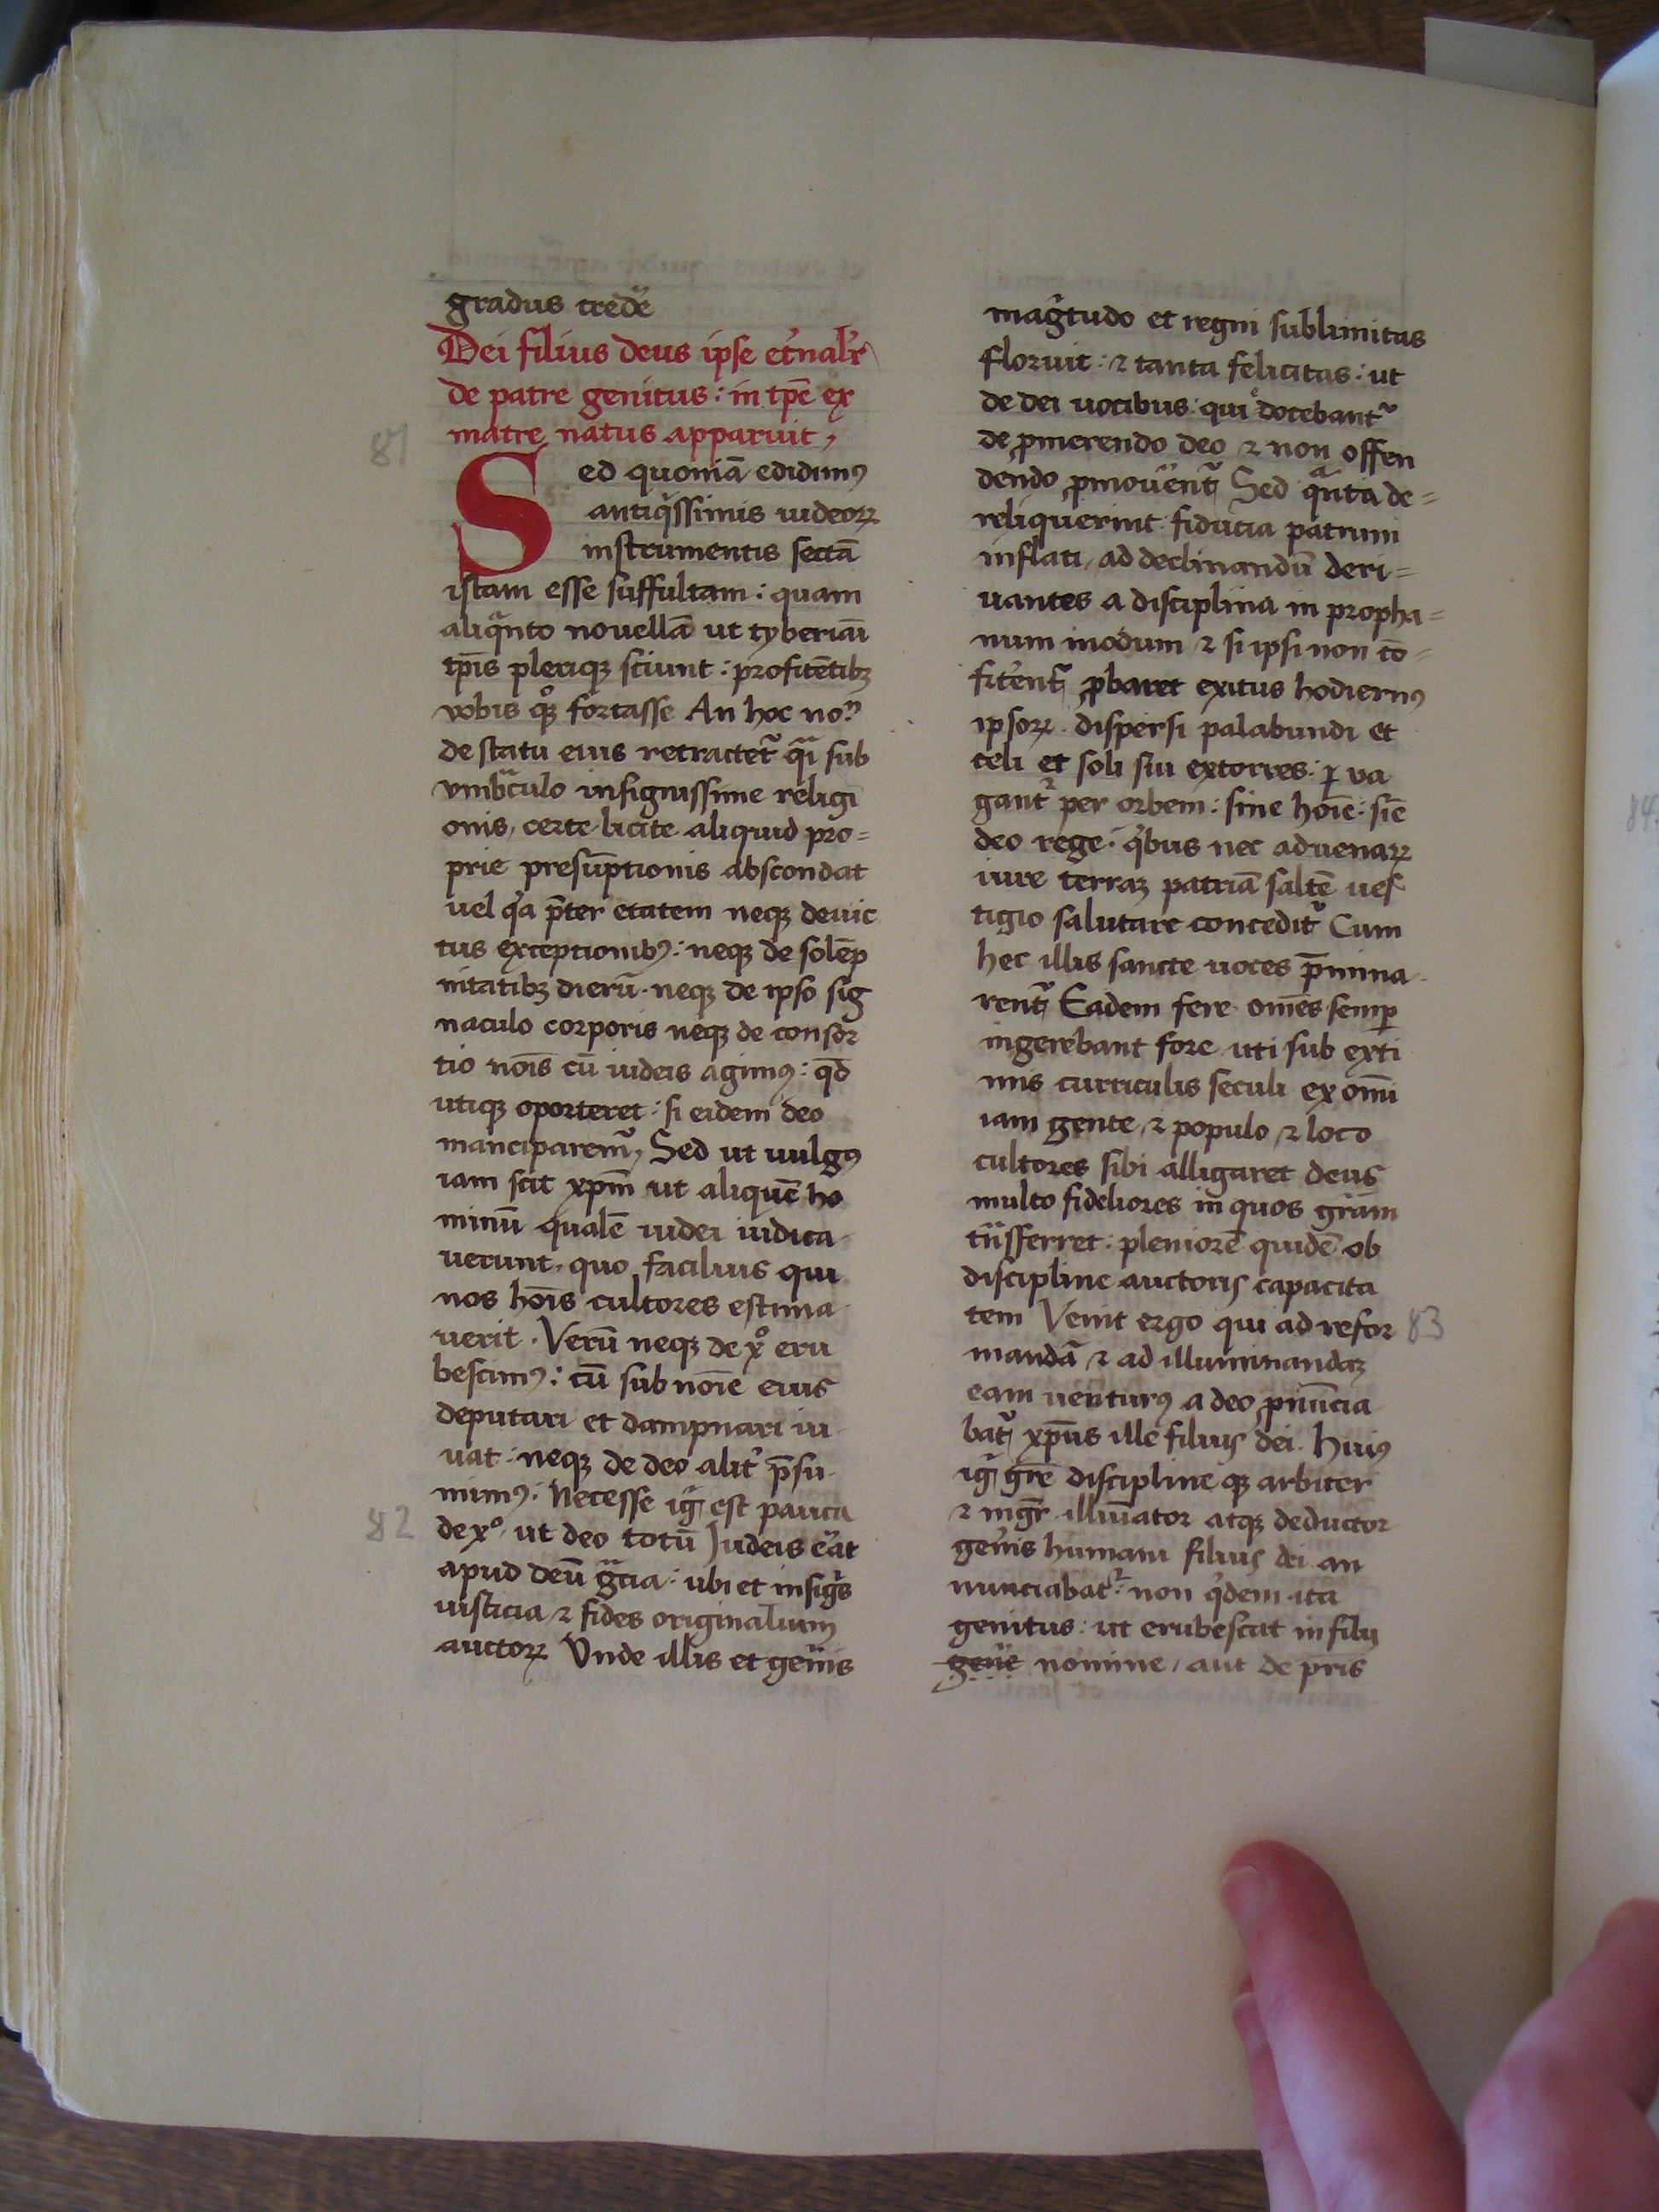 gradus crede᷑
Dei filius deus ipse et͛nal͛r
de patre genitus : in tp̄e ex
81
matre natus apparuit
Sed quoniā edidimꝰ
antiq͛ssimis iudeoꝝ
instrumentis sectā
istam esse suffultam : quam
aliqᷓnto nouellā ut tyberiāi
tp̄is pleriqꝫ sciunt : profitētibꝫ
vobis
fortasse An hoc
de statu eius retractet᷑ qᷓi sub
vmbᷓculo insignissime religi
onis, certe licite aliquid pro=
prie presūptionis abscondat
uel q͛a p̄ter etatem neqꝫ deuic
tus exceptionibꝰ : neqꝫ de solēp
nitatibꝫ dierū · neqꝫ de ipso sig
naculo corporis neqꝫ de consor
tio noīs cū iudeis agimꝰ : qd̄
utiqꝫ oporteret : si eidem deo
manciparem᷑, Sed ut uulgꝰ
iam scit xp̄m ut aliquē ho
minū qualē iudei iudica-
uerunt · quo facilius qui
nos hoīs cultores estima-
uerit · Verū neqꝫ de x͛o eru
bescimꝰ : cū sub noīe eius
deputari et dampnari iu-
uat · neqꝫ de deo alit͛ p̄su-
mimꝰ : Necesse igᷓ est pauca
82
de xº · ut deo totū Judeis e͛at
apud deū gᷓcia : ubi et insig͛s
iusticia ⁊ fides originalium
auctoꝝ Vnde illis et gen͛is
mag͛tudo et regni sublimitas
floruit : ⁊ tanta felicitas : ut
de dei uocibus : quiͤ docebant᷑
de ꝓmerendo deo ⁊ non offen
dendo p̱mouēnt᷑ Sed qᷓnta de=
reliquerint fiducia patrum
inflati, ad declinandū deri=
uantes a disciplina in propha=
num modum ⁊ si ipsi non cō=
fit͛ent᷑ ꝓbaret exitus hodiernꝰ
ipsoꝝ · dispersi palabundi et
celi et soli sui extorres : ꝑ ua
gant᷑ per orbem : sine hoīe : siē
deo rege · q͛bus nec aduenaꝝ
iure terraꝫ patriā saltē ues
tigio salutare concedit᷑ Cum
hec illis sancte uoces p̄mina-
rent᷑ Eadem fere om̄es semꝑ
ingerebant fore uti sub exti
mis curriculis seculi ex om̄i
iam gente, ⁊ populo, ⁊ loco
cultores sibi alligaret deus
multo fideliores in quos grām
tᷓnsferret : pleniorē quidē ob
discipline auctoris capacita
tem Venit ergo qui ad refor
83
mandā ⁊ ad illuminandaꝫ
eam uēnturꝰ a deo ꝓnūcia
bat᷑ xp̄us ille filius dei · Huiꝰ
igᷓ gr̄e discipline qꝫ arbiter
⁊ mgr̄ · illūiator atqꝫ deductor
gen͛is humani filius dei an
nunciabat᷑ : non q͛dem ita
genitus : ut erubescat in filij
nomine, aut de pr̄is
84